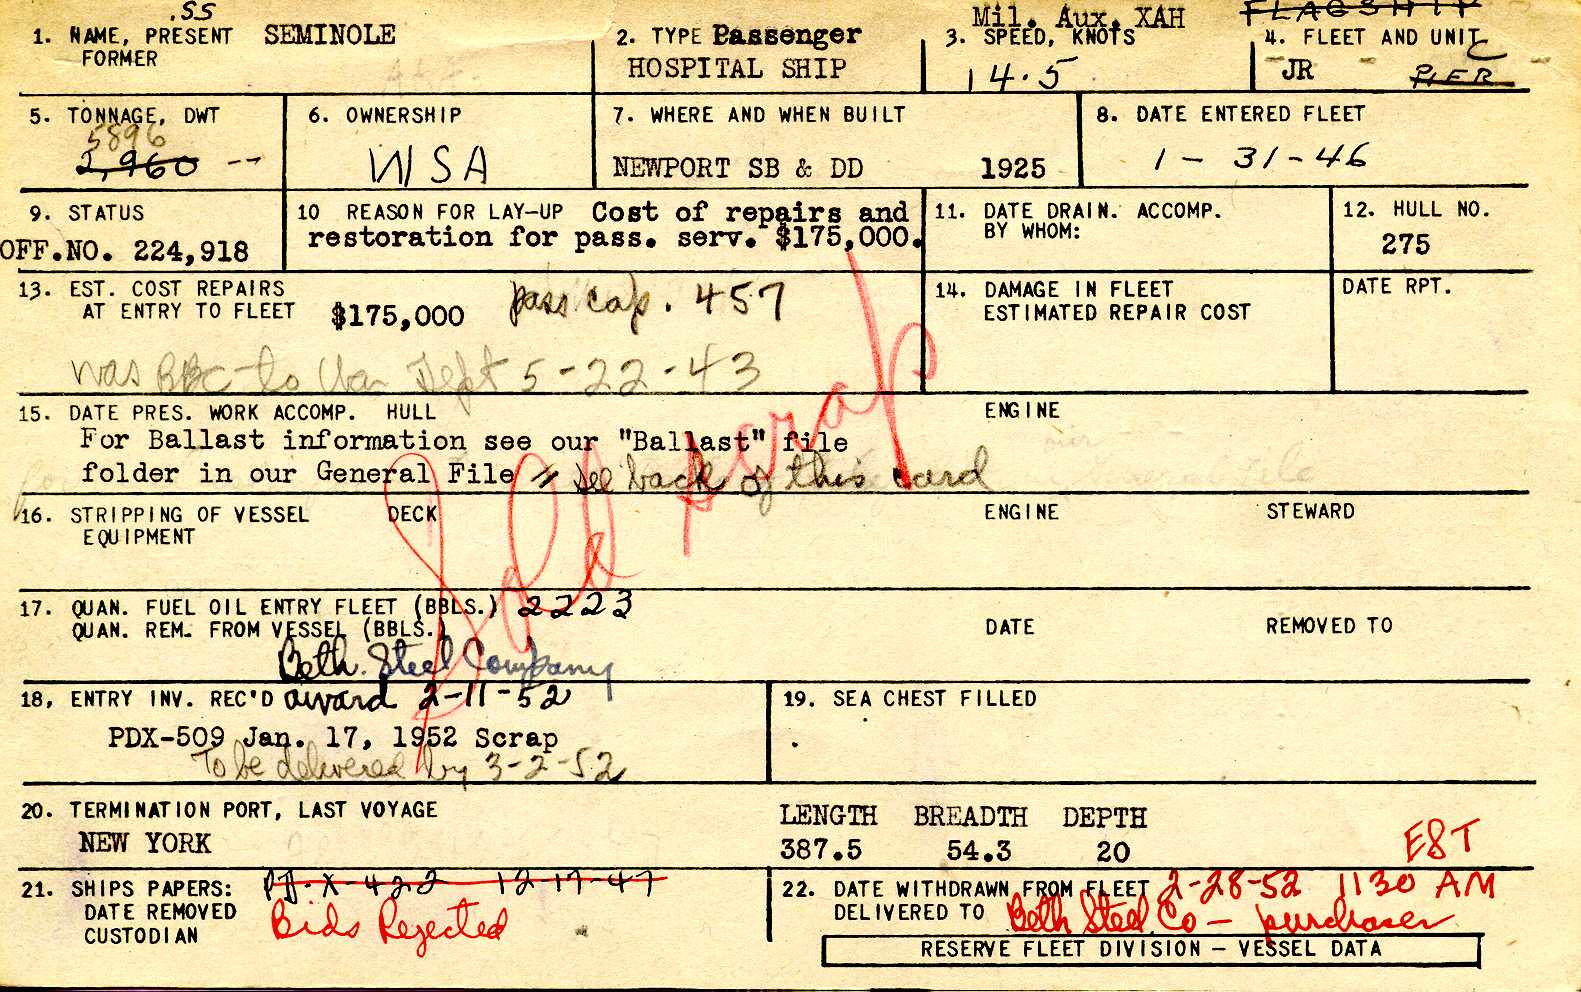 .SS Mil. Aux. XAH FLAGSHIP
1. NAME, PRESENT SEMINOLE 2. TYPE Passenger 3. SPEED, KNOTS 4. FLEET AND UNIT
FORMER HOSPITAL SHIP 14.5 JR C PIER
5. TONNAGE, DWT 6. OWNERSHIP 7. WHERE AND WHEN BUILT 8. DATE ENTERED FLEET
5896
2,960 -- WSA NEWPORT SB & DD 1925 1-31-46
9. STATUS 10 REASON FOR LAY-UP Cost of repairs and 11. DATE DRAIN. ACCOMP. 12. HULL NO.
OFF.NO. 224,918 restoration for pass. serv. $175,000. BY WHOM: 275
13. EST. COST REPAIRS pass cap. 457 14. DAMAGE IN FLEET DATE RPT.
AT ENTRY TO FLEET $175,000 ESTIMATED REPAIR COST
was BBC to War Dept 5-22-43
15. DATE PRES. WORK ACCOMP. HULL ENGINE
For Ballast information see our "Ballast" file
folder in our General File see back of this card
Sold scrap
16. STRIPPING OF VESSEL DECK ENGINE STEWARD
EQUIPMENT
17. QUAN. FUEL OIL ENTRY FLEET (BBLS.) 2223
QUAN. REM. FROM VESSEL (BBLS.) DATE REMOVED TO
Beth. Steel Company
18, ENTRY INV. REC'D award 2-11-52 19. SEA CHEST FILLED
PDX-509 Jan. 17, 1952 Scrap
To be delivered by 3-2-52
20. TERMINATION PORT, LAST VOYAGE LENGTH BREADTH DEPTH
NEW YORK 387.5 54.3 20 EST
21. SHIPS PAPERS: PD-X-422 12-17-47 22. DATE WITHDRAWN FROM FLEET 2-28-52 1130 AM
DATE REMOVED Bids Rejected DELIVERED TO Beth Steel Co - purchaser
CUSTODIAN
RESERVE FLEET DIVISION - VESSEL DATA